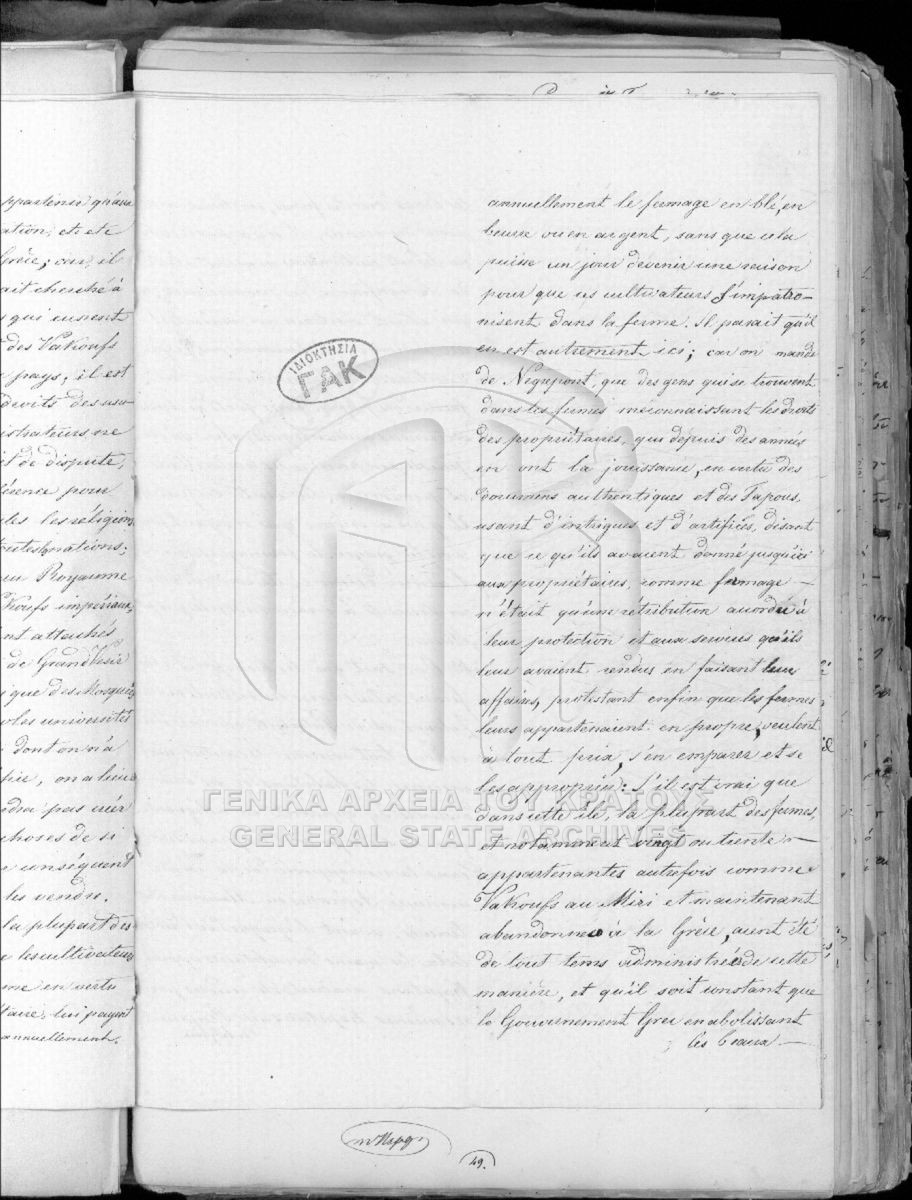 ppartenir qu'aux
ation, et été
Grèce; car, il
ait cherché à
s qui eussent
des Vakoufs
pays; il est
droits des usu-
istrateurs ne
it de dispute,
érence pour
les les réligions
toutes nations;
au Royaume
Koufs impériaux,
nt attachés
de Grand Vesir
que des Mosquées
oles universités
dont on n'a
hie, on a lieu
dra pas créer
choses de si
conséquent
les vendre.
la plupart des
e les cultivateurs
me en vertu
taire, lui payent
annuellement.
annuellement le fermage en blé, en
beurre ou en argent, sans que cela
puisse un jour devenir une raison
pour que ces cultivateurs s'impatro-
nisent dans la ferme. Il parait qu'il
en est autrement ici; car on mande
de Negrepont, que des gens qui se trouvent
dans les fermes méconnaissant les droits
des propriétaires, qui depuis des années
en ont la jouissance, en vertu des
documens authentiques et des Tapous,
usant d'intrigues et d'artifices, disant
que ce qu'ils avaient donné jusqu'ici
aux propriétaires, comme fermage —
n'était qu'une rétribution accordée à
leur protection et aux services qu'ils
leurs avaient rendus en faisant leur
affaires, protestant enfin que les fermes
leurs appartenaient en propre, veulent
à tout prix, s'en emparer et se
les approprier. S'il est vrai que
dans cette île, la plupart des fermes,
et notamment vingt ou trente —
appartenantes autrefois comme
Vakoufs au Miri et maintenant
abandonnées à la Grèce, aient été
de tout tems administrées de cette
manière, et qu'il soit constant que
le Gouvernement Grec en abolissant
les beaux —
ΙΔΙΟΚΤΗΣΙΑ
ΓΑΚ
ΓΕΝΙΚΑ ΑΡΧΕΙΑ ΤΟΥ ΚΡΑΤΟΥΣ
GENERAL STATE ARCHIVES
49.